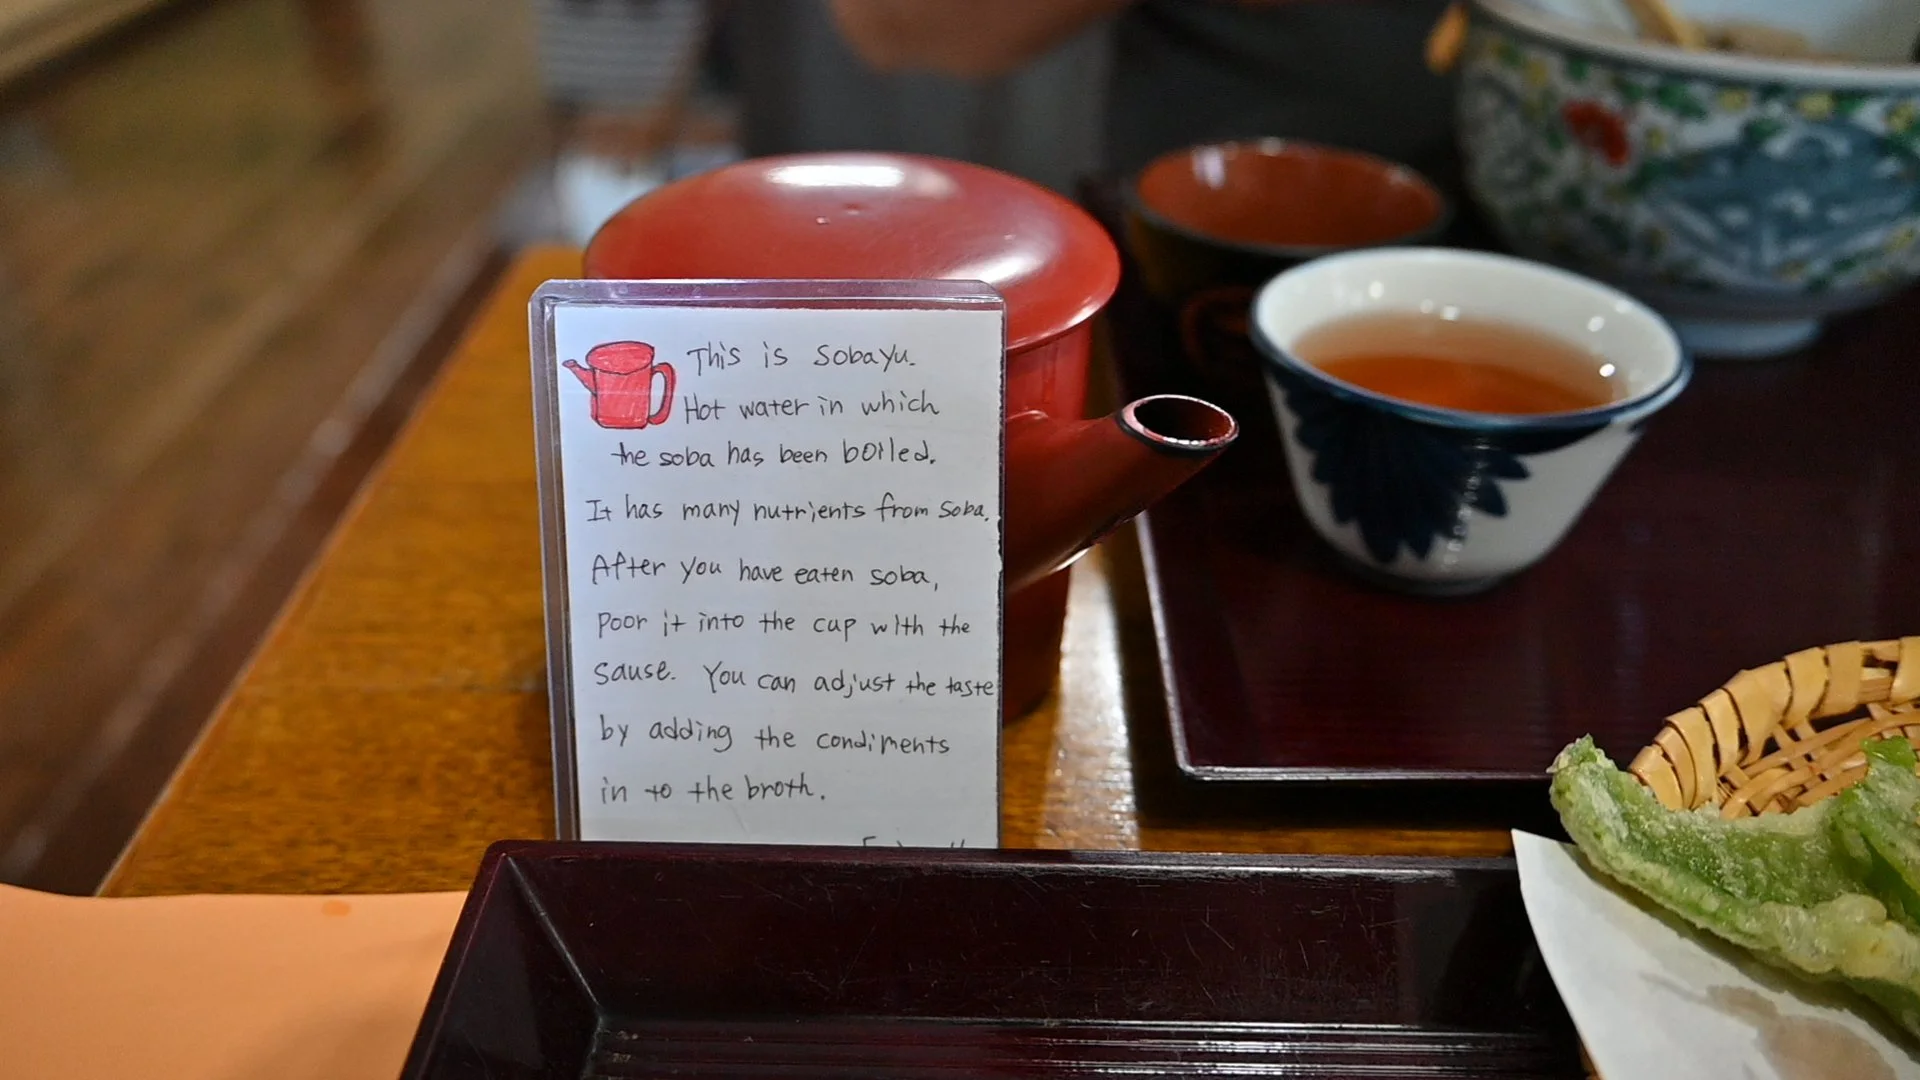 This is sobayu.
Hot water in which
the soba has been boiled.
It has many nutrients from soba.
After you have eaten soba,
poor it into the cup with the
sause. You can adjust the taste
by adding the condiments
in to the broth.